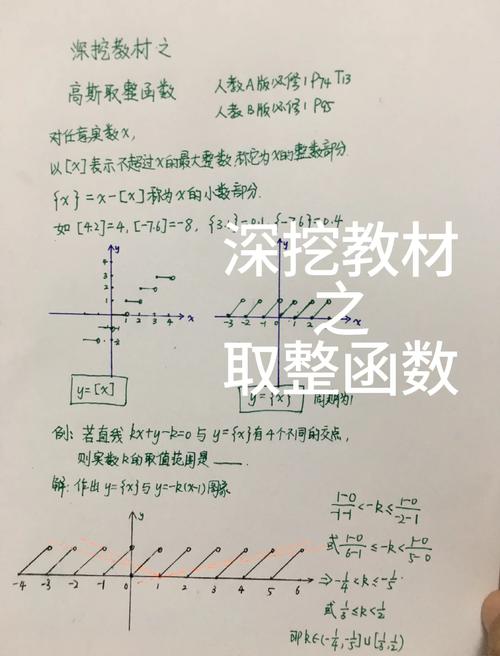 深挖教材之
高斯取整函数 人教A版必修1 P74 T13
人教B版必修1 P95
对任意实数x,
以[x]表示不超过x的最大整数,称它为x的整数部分.
{x}=x-[x]称为x的小数部分.
如[4.2]=4, [-7.6]=-8, {3.1}=0.1, {-7.6}=0.4
深挖教材
之
取整函数
y
4
3
2
1
1 2 3 4 x
-1
-2
y=[x]
y
-3 -2 -1 0 1 2 x
y={x} 周期为1
例:若直线 kx+y-k=0 与 y={x}有4个不同的交点,
则实数k的取值范围是 ____.
解:作出 y={x}与y=-k(x-1)图象
y
-4 -3 -2 -1 0 1 2 3 4 5 6
(1-0)/(-1-1) < -k ≤ (1-0)/(-2-1)
或 (1-0)/(6-1) ≤ -k < (1-0)/(5-0)
⇒ -1/4 < k ≤ -1/5
或 1/3 ≤ k < 1/2
即k∈(-1/4, -1/5]∪[1/3, 1/2)